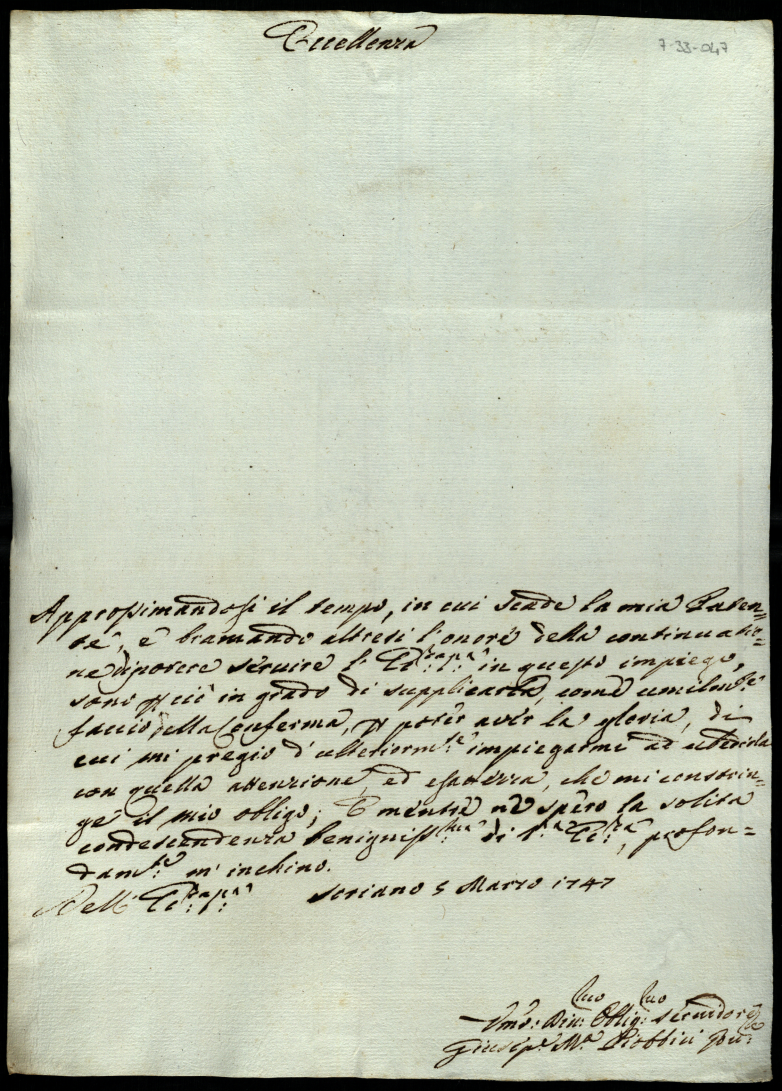 Eccellenza
7-33-047
Approssimandosi il tempo, in cui scade la mia Paten=
te, e bramando altresì l'onore della continuatio=
ne di potere servire l' Ec:za V:ra in questo impiego,
sono p ciò in grado di supplicarla, come umilm:te
faccio della Conferma, p poter aver la gloria, di
cui mi pregio d'ulteriorm:te impiegarmi ad ubidirla
con quella attenzione, ed esattezza, che mi constrin=
ge il mio obligo; E mentre ne spero la solita
condescendenza benigniss:ma di V:ra Ec:za, profon=
dam:te m'inchino.
Dell' Ec:za V:ra Soriano 5 Marzo 1747
Umo: Dev:mo Oblig:mo servidore
Giusep:e M:a